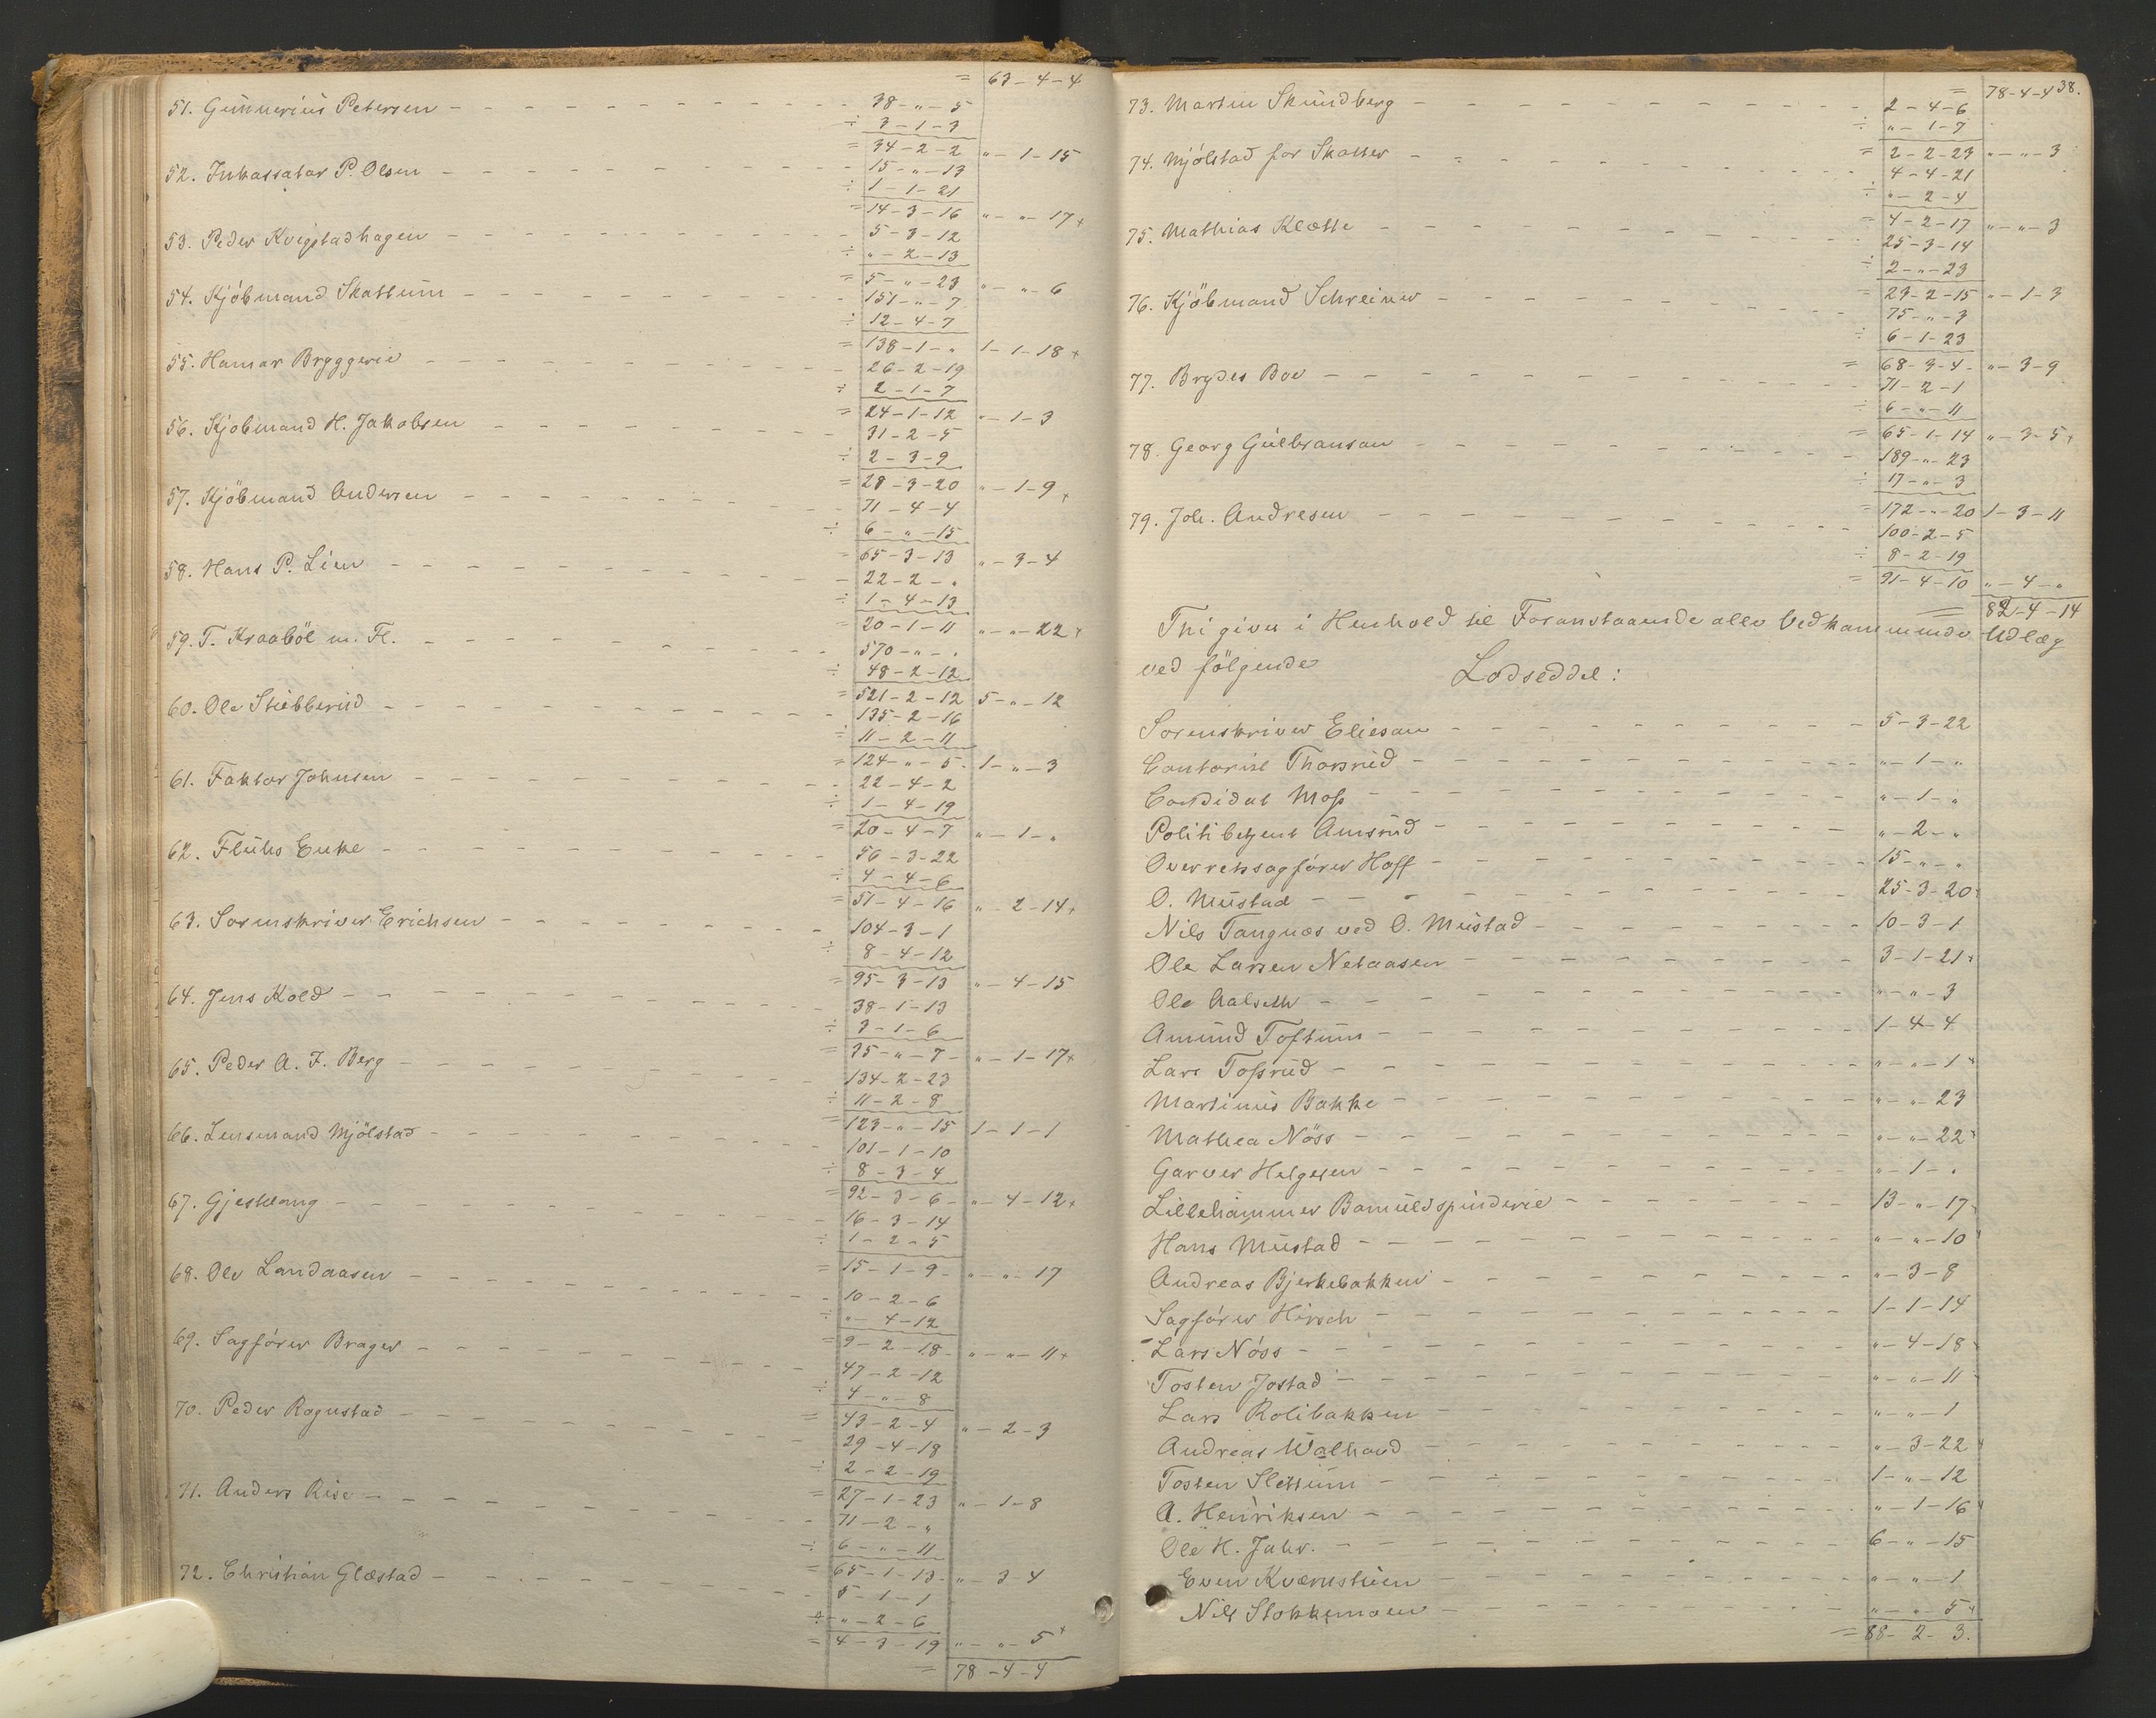 = 63-4-4
51. Gunnerius Petersen - - - 38-"-5
÷ 3-1-3
= 34-2-2 "-1-15
52. Inkassator P. Olsen - - - 15-"-13
÷ 1-1-21
= 14-3-16 "-"-17+
53. Peder Kvigstadhagen - - - 5-3-12
÷ "-2-13
= 5-"-23 "-"-6
54. Kjöbmand Skattum - - - 151-"-7
÷ 12-4-7
= 138-1-" 1-1-18+
55. Hamar Bryggerie - - - 26-2-19
÷ 2-1-7
= 24-1-12 "-1-3
56. Kjøbmand H. Jakobsen - - - 31-2-5
÷ 2-3-9
= 28-3-20 "-1-9+
57. Kjöbmand Andersen - - - 71-4-4
÷ 6-"-15
= 65-3-13 "-3-4
58. Hans P. Lien - - - 22-2-"
÷ 1-4-13
= 20-1-11 "-"-22+
59. T. Kraaböl m. Fl. - - - 570-"-"
÷ 48-2-12
= 521-2-12 5-"-12
60. Ole Stubberud - - - 135-2-16
÷ 11-2-11
= 124-"-5 1-"-3
61. Faktor Johnsen - - - 22-4-2
÷ 1-4-19
= 20-4-7 "-1-"
62. Fluhs Enke - - - 56-3-22
÷ 4-4-6
= 51-4-16 "-2-14+
63. Sorenskriver Erichsen - - - 104-3-1
÷ 8-4-12
= 95-3-13 "-4-15
64. Jens Kold - - - 38-1-13
÷ 3-1-6
= 35-"-7 "-1-17+
65. Peder A. F. Berg - - - 134-2-23
÷ 11-2-8
= 123-"-15 1-1-1
66. Lensmand Mjölstad - - - 101-1-10
÷ 8-3-4
= 92-3-6 "-4-12+
67. Gjestvang - - - 16-3-14
÷ 1-2-5
= 15-1-9 "-"-17
68. Ole Landaasen - - - 10-2-6
÷ "-4-12
= 9-2-18 "-"-11+
69. Sagförer Brager - - - 47-2-12
÷ 4-"-8
= 43-2-4 "-2-3
70. Peder Rognstad - - - 29-4-18
÷ 2-2-19
= 27-1-23 "-1-8
71. Anders Rise - - - 71-2-"
÷ 6-"-11
= 65-1-13 "-3-4
72. Christian Glæstad - - - 5-1-1
÷ "-2-6
= 4-3-19 "-"-5+
= 78-4-4
38.
= 78-4-4
73. Martin Skundberg - - - 2-4-6
÷ "-1-7
= 2-2-23 "-"-3
74. Mjölstad for Skatter - - - 4-4-21
÷ "-2-4
= 4-2-17 "-"-3
75. Mathias Klætte - - - 25-3-14
÷ 2-"-23
= 23-2-15 "-1-3
76. Kjöbmand Schreiner - - - 75-"-3
÷ 6-1-23
= 68-3-4 "-3-9
77. Brydes Boe - - - 71-2-1
÷ 6-"-11
= 65-1-14 "-3-5+
78. Georg Gulbransen - - - 189-"-23
÷ 17-"-3
= 172-"-20 1-3-11
79. Joh. Andresen - - - 100-2-5
÷ 8-2-19
= 91-4-10 "-4-"
= 82-4-14
Thi gives i Henhold til Foranstaaende alle Vedkommende Udlæg
ved fölgende
Lodseddel:
Sorenskriver Eliesen - - - 5-3-22
Contorist Thorsrud - - - "-1-"
Candidat Moss - - - "-1-"
Politibetjent Amsrud - - - "-2-"
Overretssagförer Hoff - - - 15-"-"
O. Mustad - - - 25-3-20
Nils Tangnæs ved O. Mustad - - - 10-3-1
Ole Larsen Netaasen - - - 3-1-21
Ole Aalseth - - - "-"-3
Amund Toftum - - - 1-4-4
Lars Tossrud - - - "-"-1
Martinus Bakke - - - "-"-23
Mathea Nöss - - - "-"-22
Garver Helgesen - - - "-1-"
Lillehammer Bomuldspinderie - - - 13-"-17
Hans Mustad - - - "-"-10
Andreas Bjerkebakken - - - "-3-8
Sagförer Hirsch - - - 1-1-14
Lars Nöss - - - "-4-18
Tosten Jostad - - - "-"-11
Lars Rolibakken - - - "-"-1
Andreas Walhovd - - - "-3-22
Tosten Slettum - - - 1-"-12
A. Henriksen - - - "-1-16
Ole H. Jahr. - - - 6-"-15
Even Kværnstuen - - - "-"-1
Nils Stokkemoen - - - "-"-5
= 88-2-3.